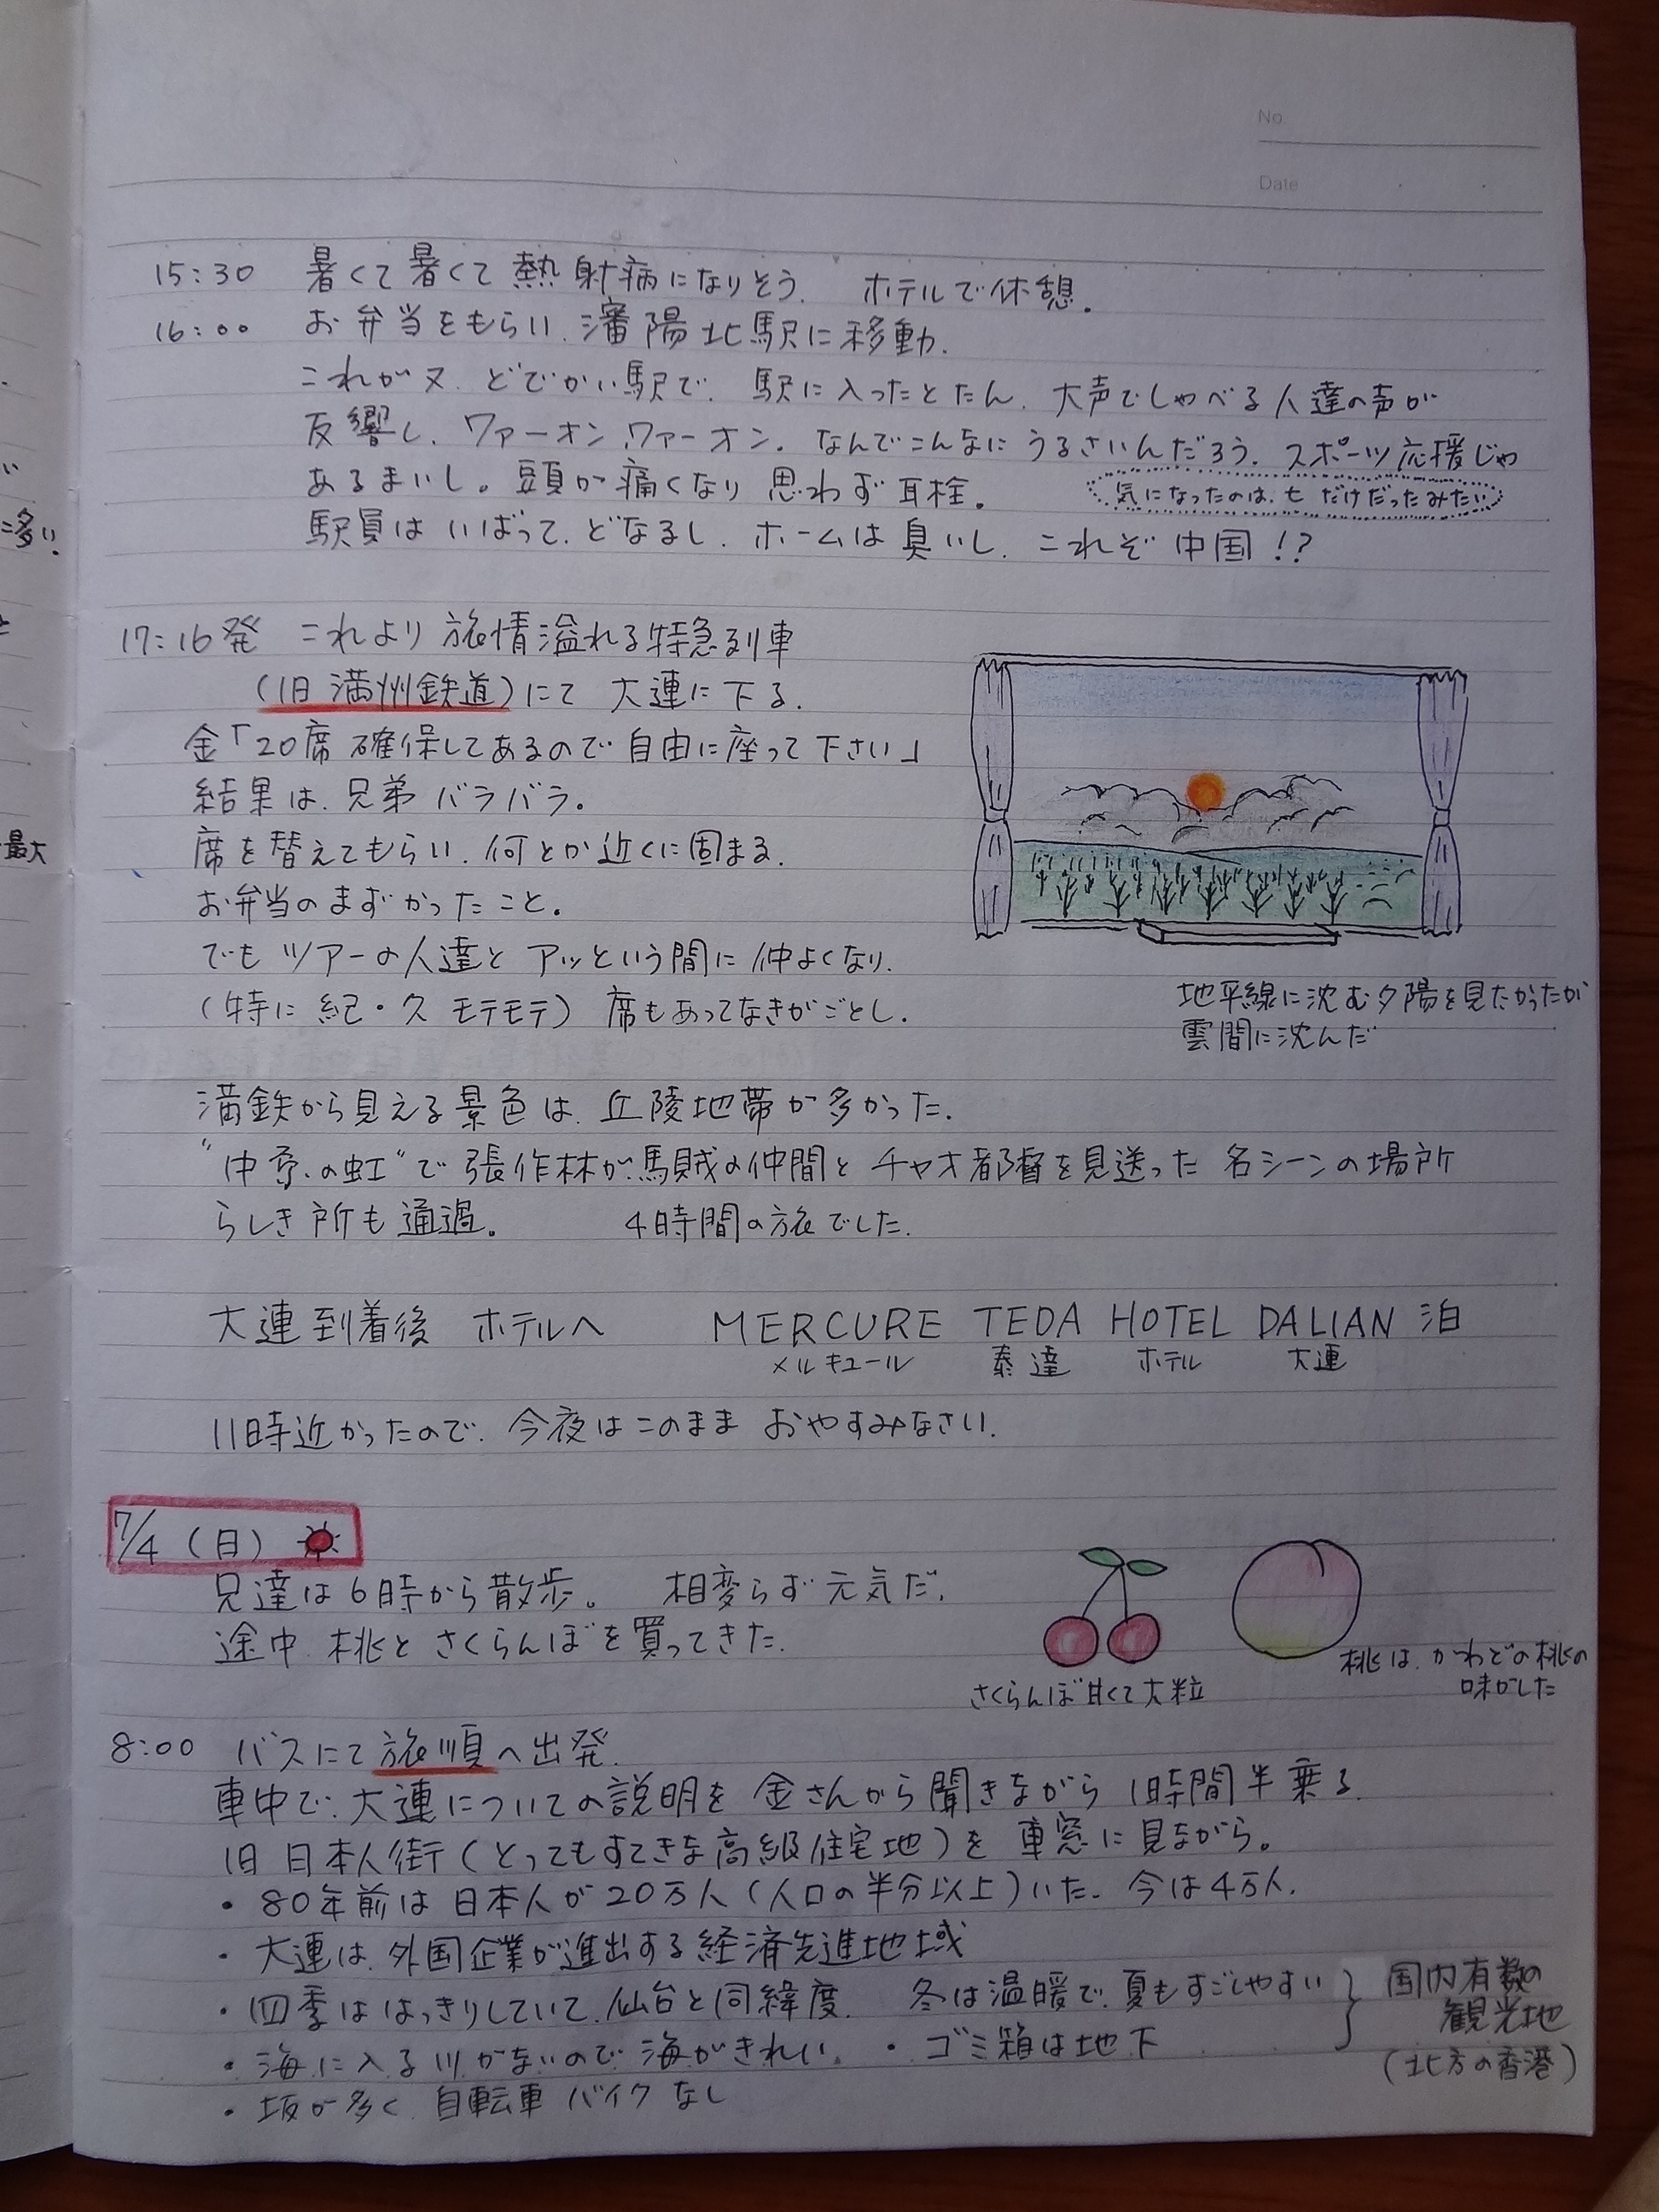 No.
Date
15:30 暑くて暑くて熱射病になりそう. ホテルで休憩.
16:00 お弁当をもらい.瀋陽北駅に移動.
これが又. どでかい駅で. 駅に入ったとたん. 大声でしゃべる人達の声が
反響し. ワァーオン.ワァーオン. なんでこんなにうるさいんだろう. スポーツ応援じゃ
あるまいし。頭が痛くなり思わず耳栓。
気になったのは. 七だけだったみたい
駅員はいばって. どなるし. ホームは臭いし. これぞ中国!?
17:16発 これより旅情溢れる特急列車
(旧満州鉄道)にて大連に下る.
金「20席確保してあるので自由に座って下さい」
結果は. 兄弟バラバラ。
席を替えてもらい. 何とか近くに固まる.
お弁当のまずかったこと。
でもツアーの人達とアッという間に仲よくなり.
(特に紀・久モテモテ)席もあってなきがごとし.
地平線に沈む夕陽を見たかったが
雲間に沈んだ
満鉄から見える景色は. 丘陵地帯が多かった.
"中原の虹"で張作林が馬賊の仲間とチャオ都督を見送った名シーンの場所
らしき所も通過。 4時間の旅でした.
大連到着後 ホテルへ MERCURE TEDA HOTEL DALIAN 泊
メルキュール 泰達 ホテル 大連
11時近かったので. 今夜はこのままおやすみなさい.
7/4(日)
兄達は6時から散歩。 相変らず元気だ.
途中桃とさくらんぼを買ってきた.
さくらんぼ甘くて大粒
桃は. かわどの桃の
味がした
8:00 バスにて旅順へ出発.
車中で. 大連についての説明を金さんから聞きながら1時間半乗る.
旧日本人街(とってもすてきな高級住宅地)を車窓に見ながら。
・80年前は日本人が20万人(人口の半分以上)いた. 今は4万人.
・大連は. 外国企業が進出する経済先進地域
・四季ははっきりしていて. 仙台と同緯度. 冬は温暖で. 夏もすごしやすい
・海に入る川がないので海がきれい. ・ゴミ箱は地下
・坂が多く. 自転車バイクなし
国内有数の
観光地
(北方の香港)
い
に多い.
と
最大